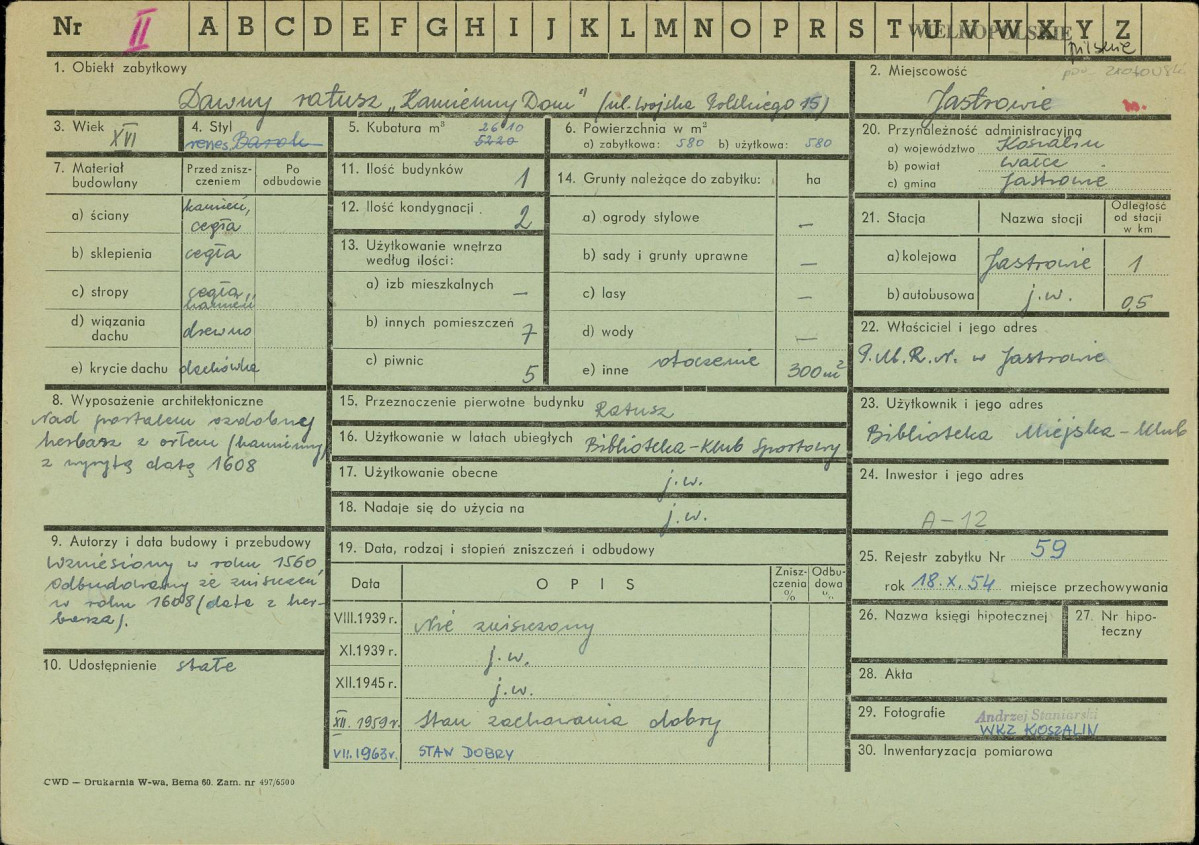 Nr II A B C D E F G H I J K L M N O P R S T U V W X Y Z
WIELKOPOLSKIE
pilskie
pow. złotowski
1. Obiekt zabytkowy
Dawny ratusz „Kamienny Dom" (ul. Wojska Polskiego 15)
2. Miejscowość
Jastrowie
m.
3. Wiek
XVI
4. Styl
renes. Barok
5. Kubatura m³
2610
5220
6. Powierzchnia w m²
a) zabytkowa: 580 b) użytkowa: 580
20. Przynależność administracyjna
a) województwo Koszalin
b) powiat Wałcz
c) gmina Jastrowie
7. Materiał budowlany
Przed zniszczeniem
Po odbudowie
a) ściany kamień, cegła
b) sklepienia cegła
c) stropy cegła, kamień
d) wiązania dachu drzewo
e) krycie dachu dachówka
11. Ilość budynków 1
12. Ilość kondygnacji 2
13. Użytkowanie wnętrza
według ilości:
a) izb mieszkalnych —
b) innych pomieszczeń 7
c) piwnic 5
14. Grunty należące do zabytku: ha
a) ogrody stylowe —
b) sady i grunty uprawne —
c) lasy —
d) wody —
e) inne otoczenie 300 m²
21. Stacja
Nazwa stacji
Odległość od stacji w km
a) kolejowa Jastrowie 1
b) autobusowa j.w. 0,5
22. Właściciel i jego adres
P.M.R.N. w Jastrowie
8. Wyposażenie architektoniczne
Nad portalem ozdobny
herbarz z orłem (kamienny)
z wyrytą datą 1608
15. Przeznaczenie pierwotne budynku Ratusz
16. Użytkowanie w latach ubiegłych Biblioteka - Klub Sportowy
17. Użytkowanie obecne j.w.
18. Nadaje się do użycia na j.w.
23. Użytkownik i jego adres
Biblioteka Miejska - Klub
24. Inwestor i jego adres
A-12
9. Autorzy i data budowy i przebudowy
Wzniesiony w roku 1560,
odbudowany ze zniszczeń
w roku 1608 (data z her-
barza).
10. Udostępnienie stałe
19. Data, rodzaj i stopień zniszczeń i odbudowy
Data
OPIS
Zniszczenia %
Odbudowa %
VIII.1939 r. Nie zniszczony
XI.1939 r. j.w.
XII.1945 r. j.w.
XII. 1959 r. Stan zachowania dobry
VII. 1963 r. STAN DOBRY
25. Rejestr zabytku Nr 59
rok 18.X.54 miejsce przechowywania
26. Nazwa księgi hipotecznej
27. Nr hipoteczny
28. Akta
29. Fotografie Andrzej Staniarski
WKZ KOSZALIN
30. Inwentaryzacja pomiarowa
CWD — Drukarnia W-wa, Bema 60. Zam. nr 497/6500